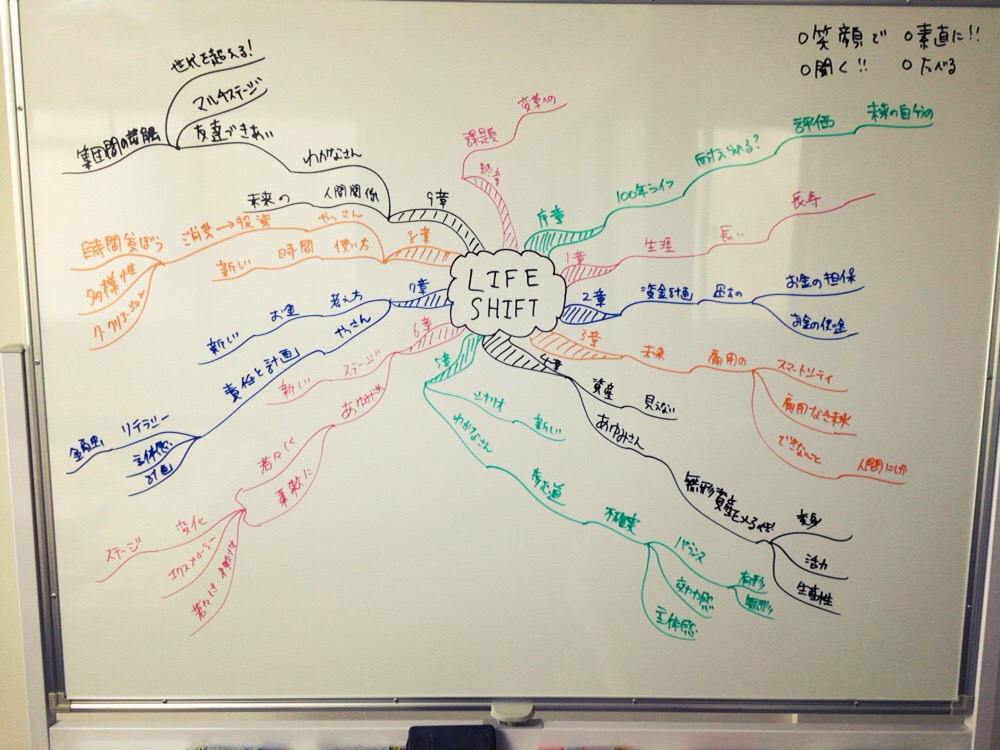 ○笑顔で ○素直に!!
○聞く!! ○たべる
LIFE
SHIFT
序章
100年ライフ
耐えられる?
評価
未来の自分の
1章
生涯
長い
長寿
2章
資金計画
お金の担保
3章
未来
雇用の
スマートシティ
雇用なき未来
できないこと
人間にしか
4章
資産
見えない
あゆみさん
変身
活力
生産性
5章
シナリオ
新しい
わかなさん
歩む道
不確実
バランス
有形
無形
主体感
6章
ステージ
新しい
若々しく
柔軟に
変化
ステージ
エクスプローラー
7章
お金
考え方
新しい
やっさん
責任と計画
リテラシー
金融
主体感
計画
8章
新しい
時間
使い方
やっさん
消費→投資
時間貧ぼう
多様性
9章
未来の
人間関係
わかなさん
友達づきあい
マルチステージ
世代を超える!
終章
課題
変革への